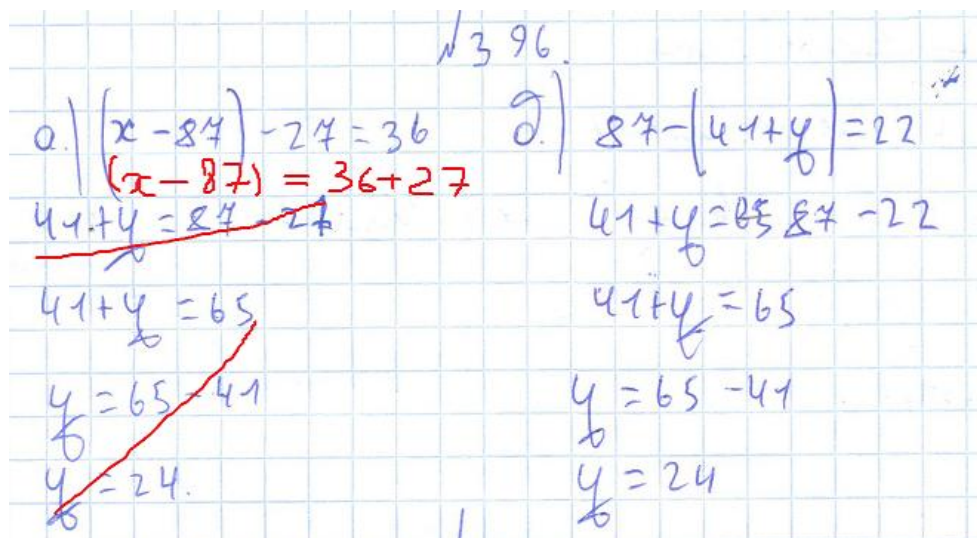 №396.
а.) (x-87)-27=36
(x-87) = 36+27
41+y=87-22
41+y=65
y=65-41
y=24.
б.) 87-(41+y)=22
41+y=65 87-22
41+y=65
y=65-41
y=24